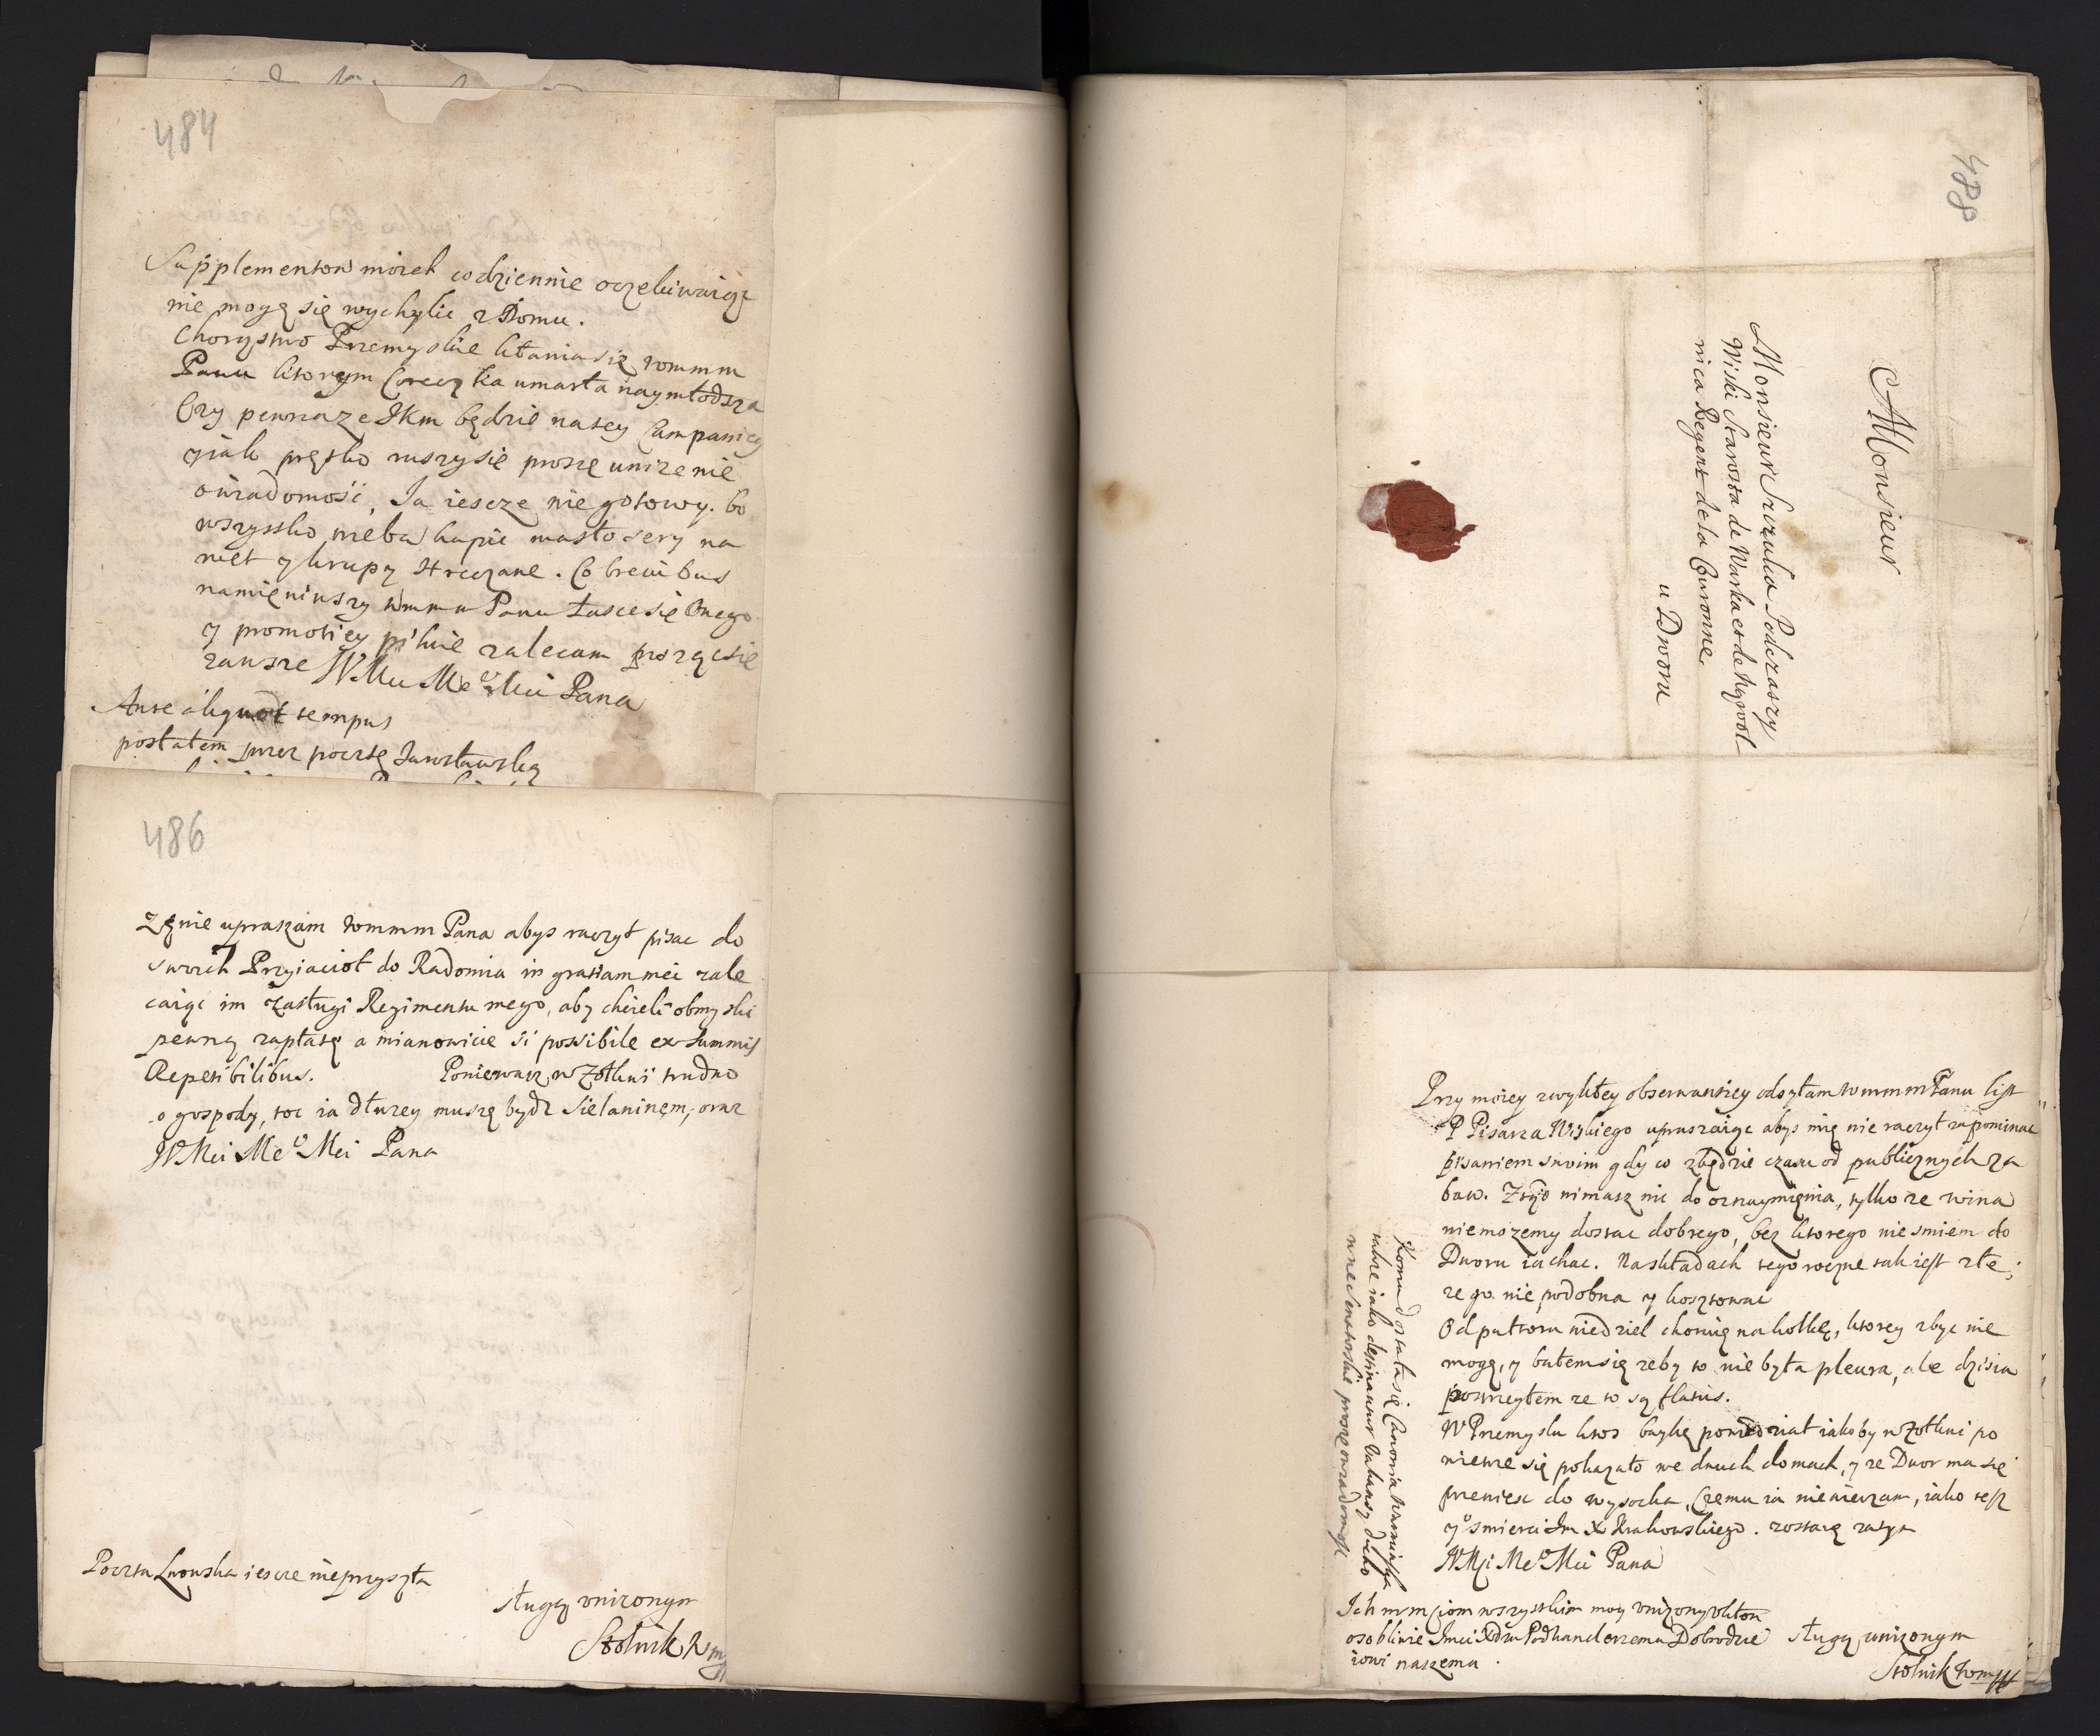 484
Supplementow moich codziennie oczekiwaiąc
nie mogę się wychylic z Domu.
Chorąstwo Przemyskie kłania się wmmm
Panu ktorym Coreczka umarła naymłodsza
Czy pewna ze Jkm będzie na tey Campaniey
y iak prętko ruszy się proszę unizenie
o wiadomosć, Ja iescze nie gotowy. bo
wszystko trzeba kupic masto sery na
wet y krupy Hreczane. Co brevibus
namieniwszy wmmu Panu Łasce się Onego
y promotiey pilnie zalecam pisząc się
zawsze WMci Mego Mci Pana
Ante aliquot tempus
posłałem przez pocztę Jarosławską
486
zenie upraszam wmmm Pana abys raczył pisac do
swoich Przyiacioł do Radomia in gratiam mei zale
caiąc im zasługi Regimentu mego, aby chcieli obmyslic
pewną zapłatę a mianowicie si possibile ex summis
Repetibilibus. Poniewasz w Zołkwi trudno
o gospody, toc ia dłuzey muszę bydz Sielaninem, oraz
WMci Mego Mci Pana
Poczta Lwowska iescze nie przyszła
sługą unizonym
Stolnik
488
Monsieur
Monsieur Szczuka Podczaszy
Wiski Starosta de Warka et de Wąwol
nica Regent de la Couronne.
u Dworu
Przy moiey zwykłey obserwantiey odsyłam wmmm Panu list
P Pisarza Wiskiego upraszaiąc abys mię nie raczył zapominac
pisaniem swoim gdy co zbędzie czasu od publicznych za
baw. Ztąd nimasz nic do oznaymięnia, tylko ze wina
niemozemy dostac dobrego, bez ktorego nie smiem do
Dworu iachac. Na składach tegoroczne tak iest złe;
ze go nie podobna y kosztowac
Od puttora niedziel choruię na kolkę, ktorey zbyc nie
mogę, y bałem się zeby to nie była pleura, ale dzisia
postrzegłem ze to są flatus.
W Przemyslu ktos baykę powiedział iakoby w Zołkwi po
wietrze się pokazało we dwuch domach, y ze Dwor ma się
przeniesc do Wysocka, Czemu ia nie wierzam, iako tesz
y o smierci Im X Krakowskiego. zostaię zatym
WMci Mego Mci Pana
Komu dostała się Canonia Warminska
takze iako destinantur Vakansy
wne Senatorskie proszę o wiadomosc
Ich mm Ciom wszystkim moy unizony ukłon
osoblivie Jmci Xdzu Podkanclerzemu Dobrodzie
iowi naszemu.
sługą unizonym
Stolnik